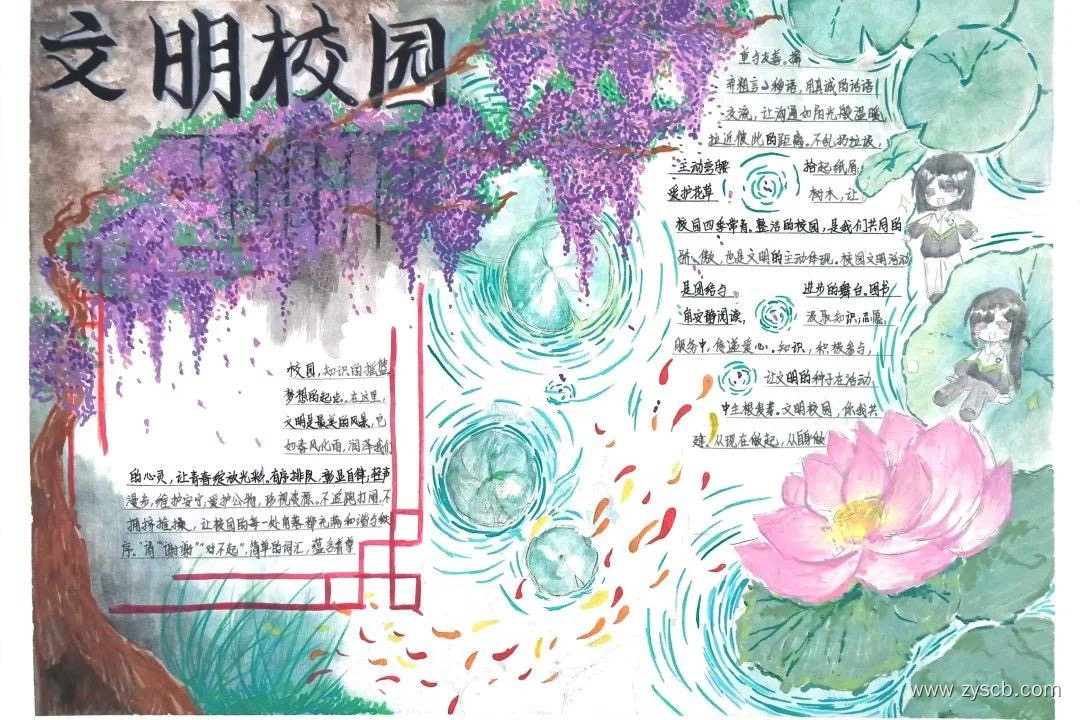 文明校园
校园,知识的摇篮
梦想的起点。在这里,
文明是最美的风景,它
如春风化雨,润泽我们
的心灵,让青春绽放光彩。有序排队,彰显自律;轻声
漫步,维护安宁,爱护公物,珍视资源。不追跑打闹,不
拥挤推搡,让校园的每一处角落都充满和谐与秩
序。"请""谢谢""对不起",简单的词汇,蕴含着尊
重与友善。摒
弃粗言秽语,用真诚的话语
交流,让沟通如阳光般温暖
拉近彼此的距离。不乱扔垃圾,
主动弯腰 拾起纸屑;
爱护花草 树木,让
校园四季常青。整洁的校园,是我们共同的
骄傲,也是文明的生动体现。校园文明活动
是团结与 进步的舞台。图书
角安静阅读, 汲取知识;志愿
服务中,传递爱心。知识,积极参与,
让文明的种子在活动
中生根发芽。文明校园,你我共
建。从现在做起,从自身做
www.zyscb.com